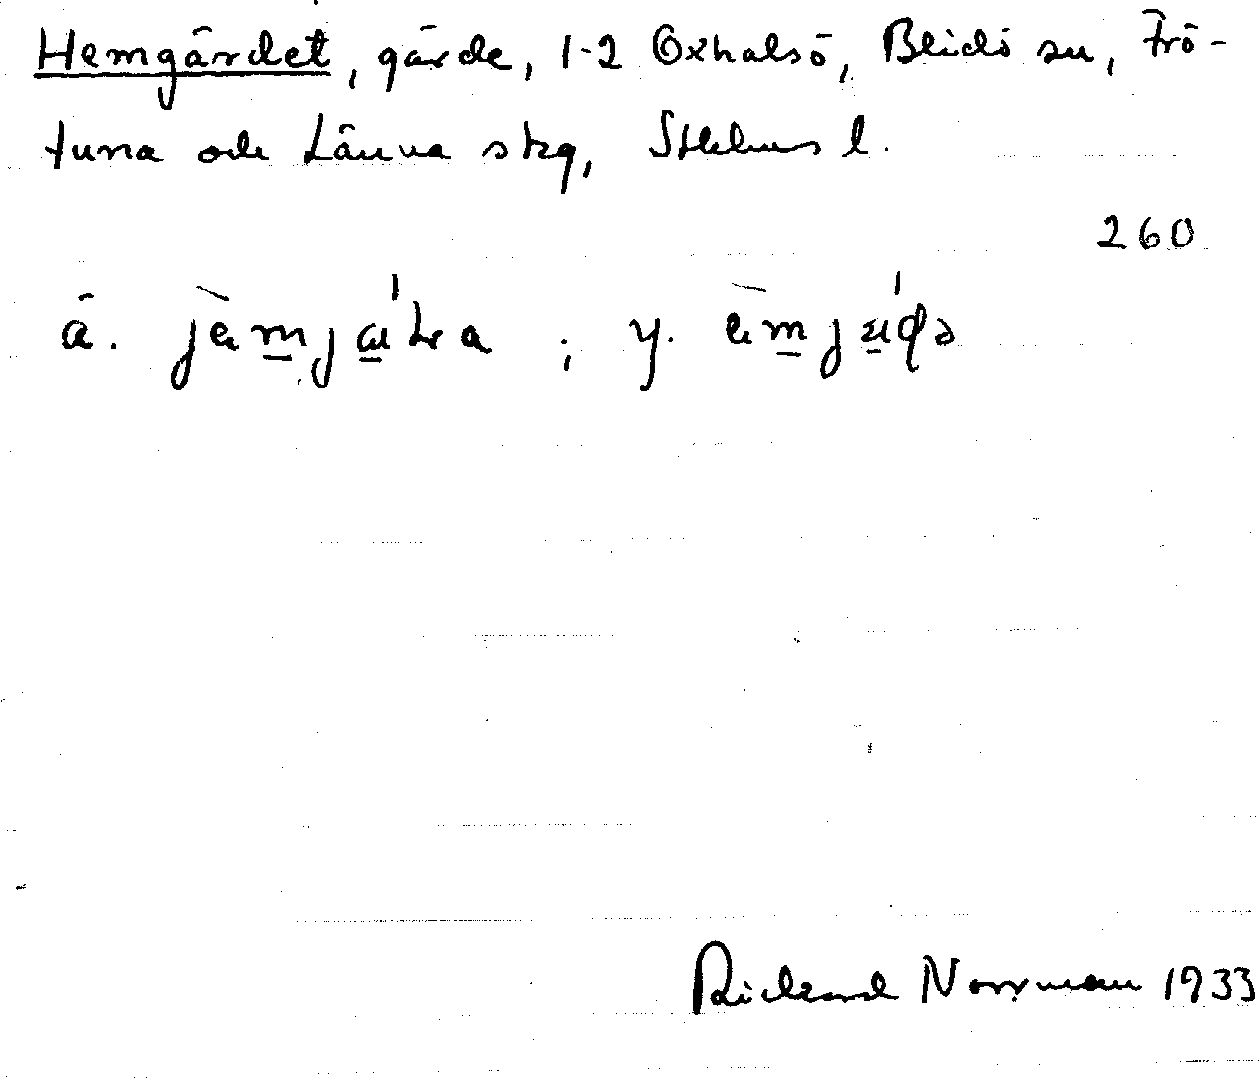 Hemgärdet, gärde, 1-2 Oxhalsö, Blidö sn, Frö-
tuna och Länna skg, Sthlms l.
260
ä. ; y.
Rickard Norrman 1933